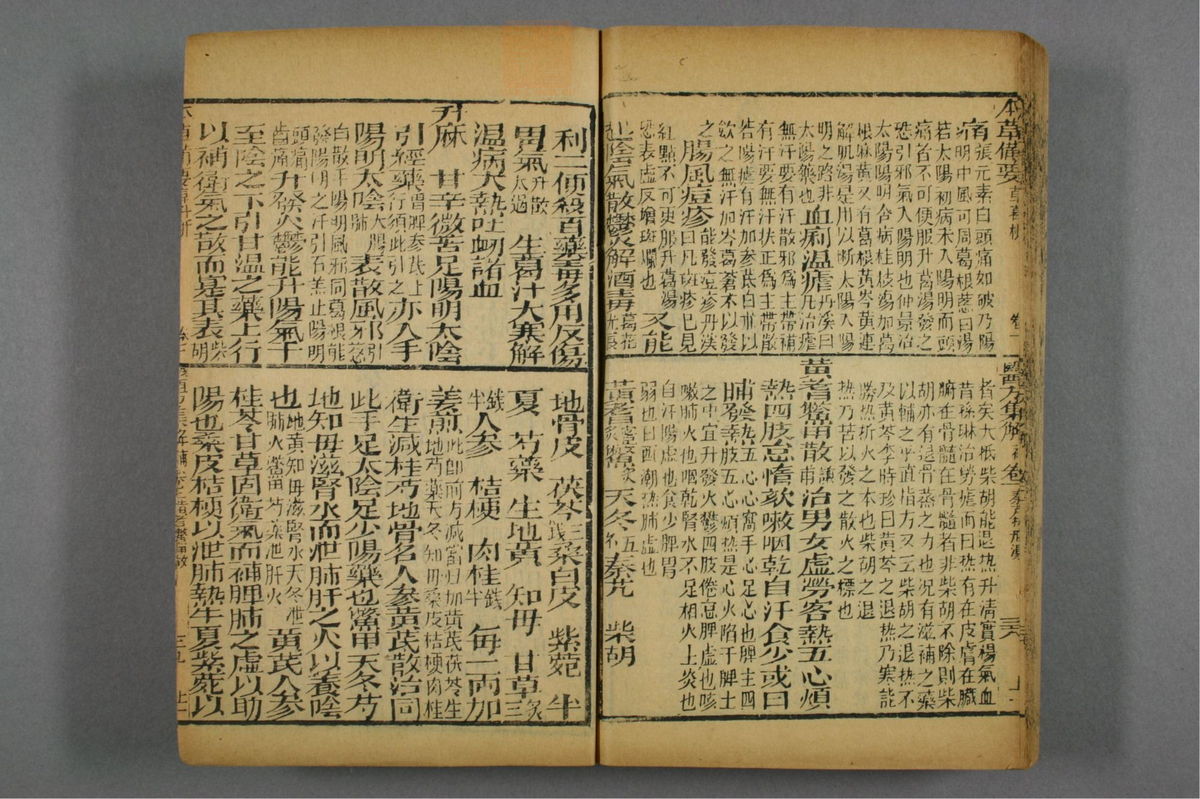 本草備要 草 葛根 卷一
痛張元素曰頭痛如破乃陽
明中風可同葛根葱白湯
若太陽初病未入陽明而頭
痛者不可便服升葛湯發之
恐引邪氣入陽明也仲景治
太陽陽明合病桂枝湯加葛
根麻黃又有葛根黃芩黃連
解肌湯是用以斷太陽入陽
明之路非
太陽藥也 血痢溫瘧丹溪曰凡治瘧
無汗要有汗散邪為主帶補
有汗要無汗扶正為主帶散
若陽瘧有汗加參芪白朮以
斂之無汗加芩葛蒼朮以發
之 腸風痘疹能發痘疹丹溪曰凡斑疹已見
紅點不可更服升葛湯
恐表虛反增斑爛也 又能
起陰氣散鬱火解酒毒葛花尤良
醫方集解 補卷 秦艽扶羸湯 三六 上
者矣大抵柴胡能退熱升清實陽氣血
昔孫琳治勞瘧而曰熱有在皮膚在臟
腑在骨髓在骨髓者非柴胡不除則柴
胡亦有退骨蒸之力也況有滋補之藥
以輔之乎直指方又云柴胡之退熱不
及黃芩李時珍曰黃芩之退熱乃寒能
勝熱折火之本也柴胡之退
熱乃苦以發之散火之標也
黃耆鱉甲散謙甫 治男女虛勞客熱五心煩
熱四肢怠惰欬嗽咽乾自汗食少或日
晡發熱五心心窩手心足心也脾主四
肢五心煩熱是心火陷于脾土
之中宜升發火鬱四肢倦怠脾虛也咳
嗽肺火也咽乾腎水不足相火上炎也
自汗陽虛也食少脾胃
弱也日西潮熱肺虛也
黃耆蜜炙 鱉甲 天冬五錢 秦艽 柴胡
利二便殺百藥毒多用反傷
胃氣升散太過 生葛汁大寒解
溫病大熱吐衄諸血
升麻 甘辛微苦足陽明太陰
引經藥胃脾參芪上行須此引之亦入手
陽明太陰大腸肺表散風邪引葱
白散手陽明風邪同葛根能
發陽明之汗引石羔止陽明
頭痛
齒痛升發火鬱能升陽氣于
至陰之下引甘溫之藥上行
以補衛氣之散而實其表柴胡
地骨皮 茯苓三錢 桑白皮 紫菀 半
夏 芍藥 生地黃 知母 甘草炙三
錢 人參 桔梗 肉桂錢半 每一兩加
姜煎此即前方減當归加黃芪茯苓生
地芍藥天冬知母桑皮桔梗肉桂
衛生減桂芍地骨名人參黃芪散治同
此手足太陰足少陽藥也鱉甲天冬芍
地知母滋腎水而泄肺肝之火以養陰
也地黃知母滋腎水天冬泄
肺火鱉甲芍藥泄肝火 黃芪人參
桂苓甘草固衛氣而補脾肺之虛以助
陽也桑皮桔梗以泄肺熱半夏紫菀以